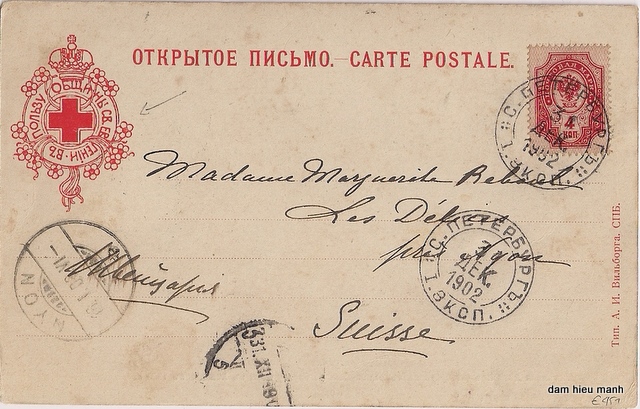 ОТКРЫТОЕ ПИСЬМО. — CARTE POSTALE.
ВЪ ПОЛЬЗУ ОБЩИНЫ СВ. ЕВГЕНІИ
4
КОП.
С. ПЕТЕРБУРГЪ
3
ДЕК.
1902
1 ЭКСП.
Madame Marguerite
Les
près Nyon
Швейцарія
Suisse
С. ПЕТЕРБУРГЪ
3
ДЕК.
1902
1 ЭКСП.
NYON
31.XII
Тип. А. И. Вильборга. СПБ.
dam hieu manh
€451